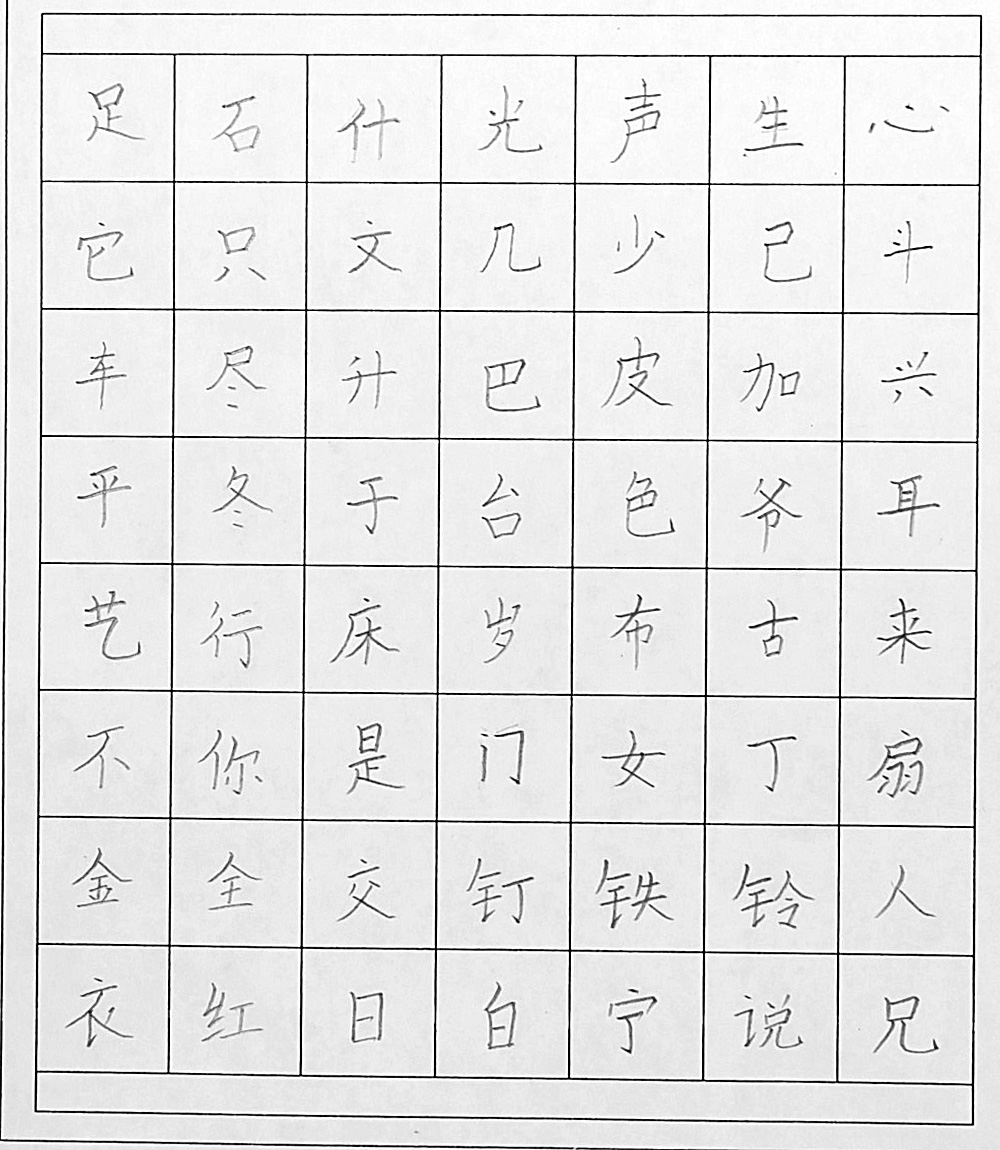 足 石 什 光 声 生 心
它 只 文 几 少 己 斗
车 尽 升 巴 皮 加 兴
平 冬 于 台 色 爷 耳
艺 行 床 岁 布 古 来
不 你 是 门 女 丁 扇
金 全 交 钉 铁 铃 人
衣 红 日 白 宁 说 兄